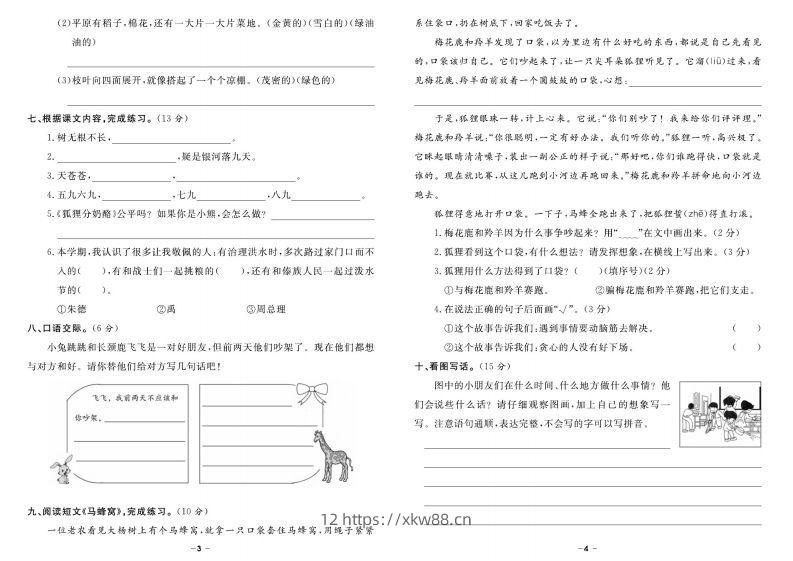 (2)平原有稻子,棉花,还有一大片一大片菜地。(金黄的)(雪白的)(绿油
油的)
(3)枝叶向四面展开,就像搭起了一个个凉棚。(茂密的)(绿色的)
七、根据课文内容,完成练习。(13 分)
1. 树无根不长,。
2. ,疑是银河落九天。
3. 天苍苍,,。
4. 五九六九,,七九,八九。
5.《狐狸分奶酪》公平吗？如果你是小熊,会怎么做？
6. 本学期,我认识了很多让我敬佩的人:有治理洪水时,多次路过家门口而不
入的(  ),有和战士们一起挑粮的(  ),还有和傣族人民一起过泼水
节的(  )。
①朱德 ②禹 ③周总理
八、口语交际。(6 分)
小兔跳跳和长颈鹿飞飞是一对好朋友,但前两天他们吵架了。现在他们都想
与对方和好。请你替他们给对方写几句话吧！
飞飞,我前两天不应该和
你吵架,
九、阅读短文《马蜂窝》,完成练习。(10 分)
一位老农看见大杨树上有个马蜂窝,就拿一只口袋套住马蜂窝,用绳子紧紧
–3–
系住袋口,扔在树底下,回家吃饭去了。
梅花鹿和羚羊发现了口袋,以为里边有什么好吃的东西,都说是自己先看见
的,口袋该归自己。它们吵起来了,让一只尖耳朵狐狸听见了。它溜(liū)过来,看
见梅花鹿、羚羊面前放着一个圆鼓鼓的口袋,心想:
于是,狐狸眼珠一转,计上心来。它说:“你们别吵了！我来给你们评评理。”
梅花鹿和羚羊说:“你很聪明,一定有好办法。我们听你的。”狐狸一听,高兴极了。
它眯起眼睛清清嗓子,装出一副公正的样子说:“那好吧,你们谁跑得快,口袋就是
谁的。现在就比赛,从这儿跑到小河边再跑回来。”梅花鹿和羚羊拼命地向小河边
跑去。
狐狸得意地打开口袋。一下子,马蜂全跑出来了,把狐狸蜇(zhē)得直打滚。
1. 梅花鹿和羚羊因为什么事争吵起来？用“﹏﹏”在文中画出来。(2 分)
2. 狐狸看到这个口袋,有什么想法？请发挥想象,在横线上写出来。(3 分)
3. 狐狸用什么方法得到了口袋？(  )(填序号)(2 分)
①与梅花鹿和羚羊赛跑。 ②骗梅花鹿和羚羊赛跑,把它们支走。
4. 在说法正确的句子后面画“√”。(3 分)
①这个故事告诉我们:遇到事情要动脑筋去解决。 (  )
②这个故事告诉我们:贪心的人没有好下场。 (  )
十、看图写话。(15 分)
图中的小朋友们在什么时间、什么地方做什么事情？他
们会说些什么话？请仔细观察图画,加上自己的想象写一
写。注意语句通顺,表达完整,不会写的字可以写拼音。
–4–
12 https://xkw88.cn